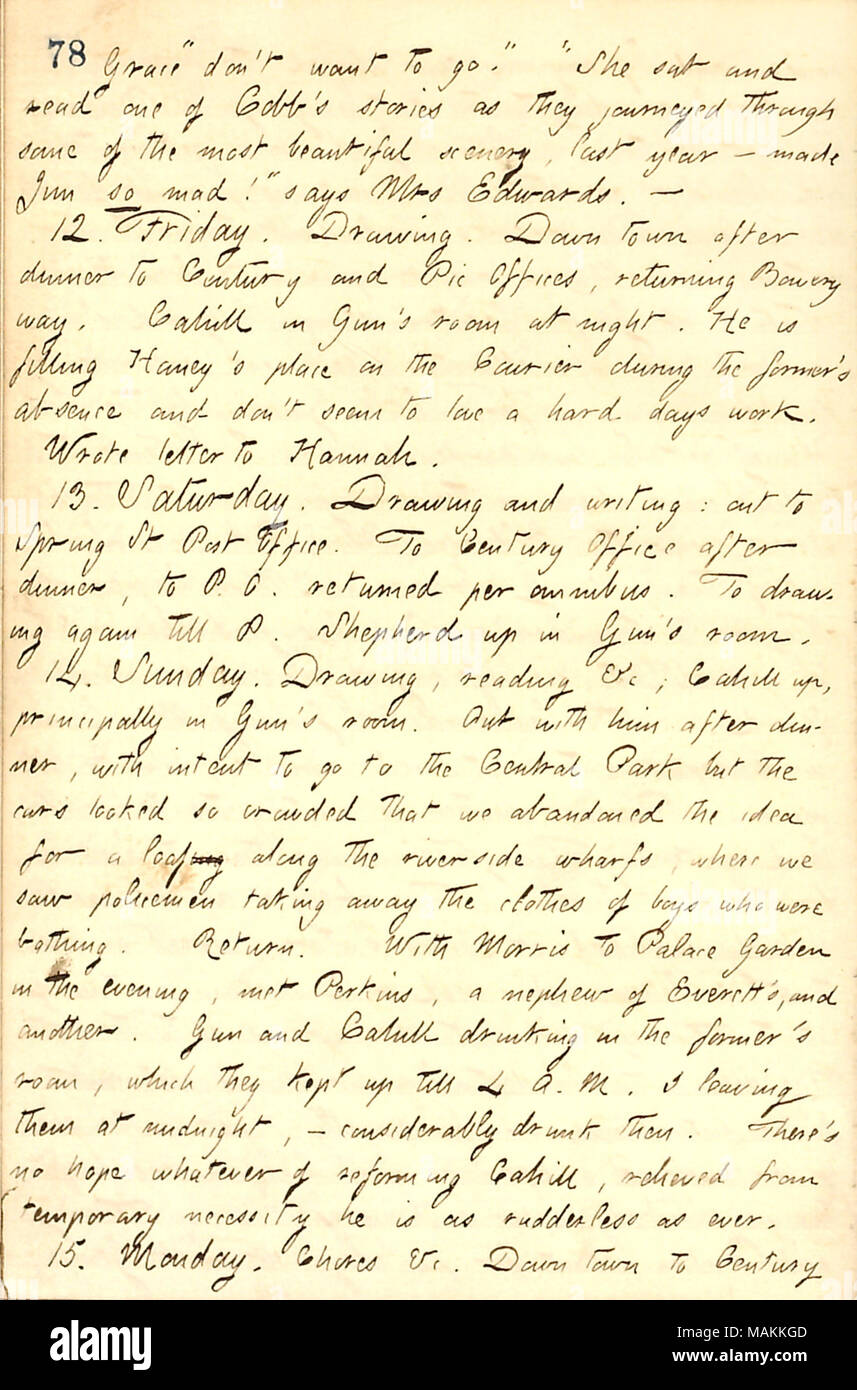 78
Grace "don't want to go." "She sat and
read one of Cobb's stories as they journeyed through
some of the most beautiful scenery, last year — made
Jim so mad!" says Mrs Edwards. —
12. Friday. Drawing. Down town after
dinner to Century and Pic Offices, returning Bowery
way. Cahill in Gun's room at night. He is
filling Haney's place on the Courier during the former's
absence and don't seem to love a hard days work.
Wrote letter to Hannah.
13. Saturday. Drawing and writing: out to
Spring St Post Office. To Century Office after
dinner, to P. O. returned per omnibus. To draw-
ing again till P. Shepherd up in Gun's room.
14. Sunday. Drawing, reading &c; Cahill up,
principally in Gun's room. Out with him after din-
ner, with intent to go to the Central Park but the
cars looked so crowded that we abandoned the idea
for a loafing along the riverside wharfs, where we
saw policemen taking away the clothes of boys who were
bathing. Return. With Morris to Palace Garden
in the evening, met Perkins, a nephew of Everett's, and
another. Gun and Cahill drinking in the former's
room, which they kept up till 4 A. M. I leaving
them at midnight, — considerably drunk then. There's
no hope whatever of reforming Cahill, relieved from
temporary necessity he is as rudderless as ever.
15. Monday. Chores &c. Down town to Century
alamy
Image ID: MAKKGD
www.alamy.com